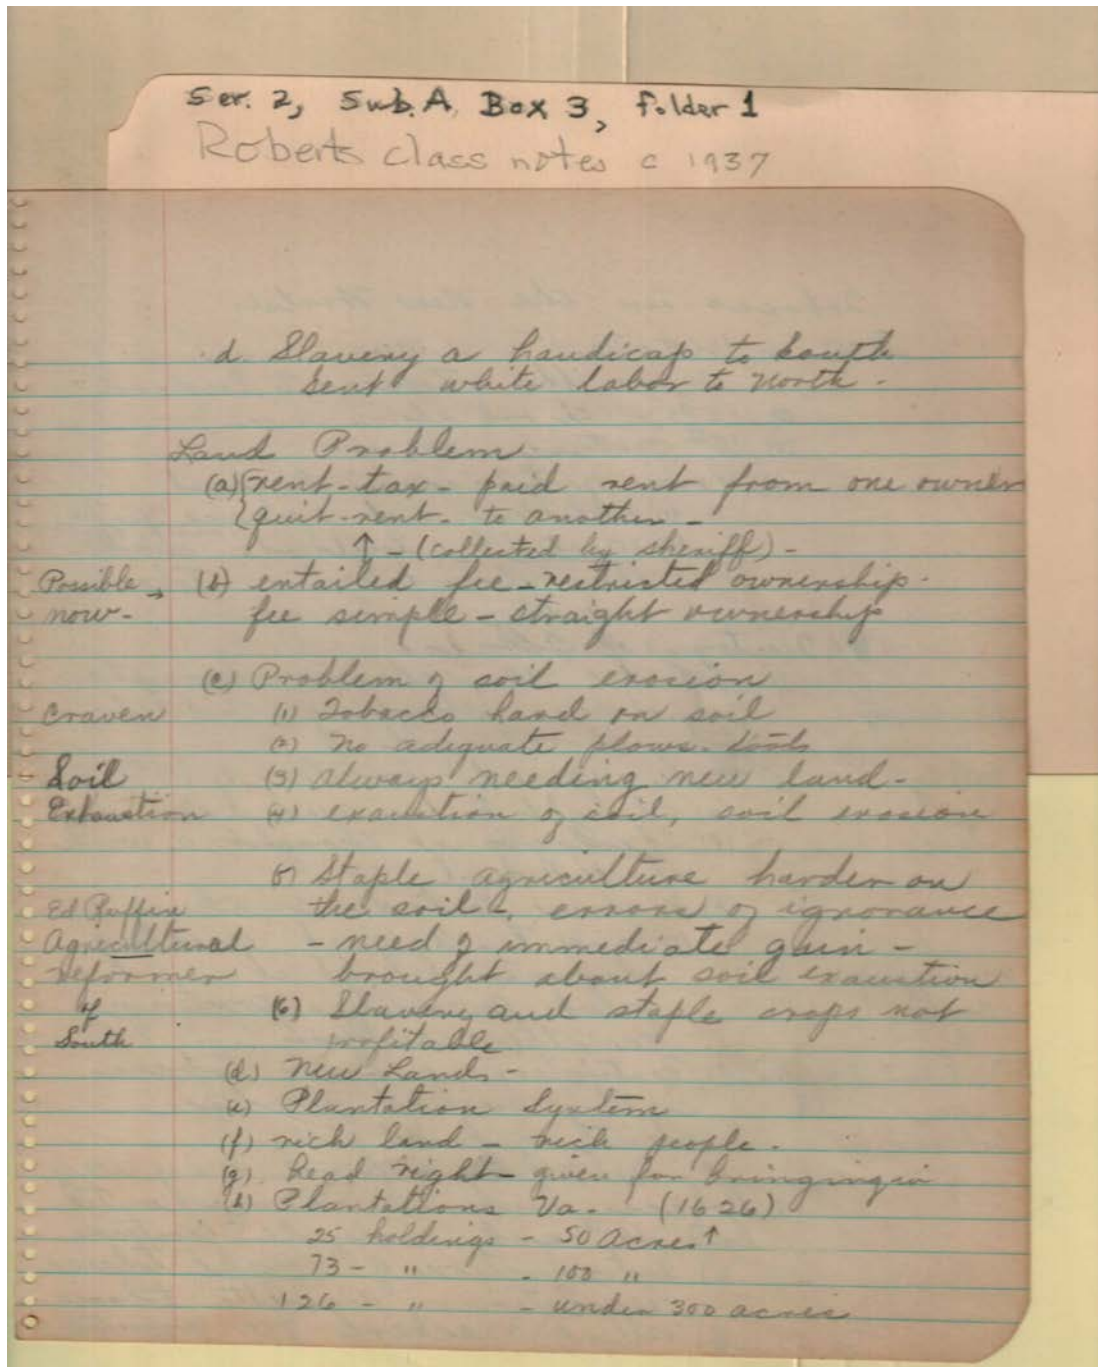 Ser. 2, Sub. A, Box 3, folder 1
Roberts class notes c 1937
d. Slavery a handicap to South
sent white labor to North -
Land Problem
(a) rent - tax - paid rent from one owner
quit-rent - to another -
↑ - (collected by sheriff) -
Possible → (b) entailed fee - restricted ownership.
now - fee simple - straight ownership
(c) Problem of soil erosion
Craven (1) Tobacco hard on soil
(2) no adequate plows - tools
Soil (3) always needing new land -
Exhaustion (4) exaustion of soil, soil erosion
(5) Staple agriculture harder on
Ed Ruffin the soil -, errors of ignorance
Agricultural - need of immediate gain -
reformer brought about soil exaustion
of (6) Slavery and staple crops not
South profitable
(d) New Lands -
(e) Plantation System
(f) rich land - rich people.
(g) head right - given for bringing in
(h) Plantations Va - (1626)
25 holdings - 50 Acres ↑
73 - " - 100 "
126 - " - under 300 acres